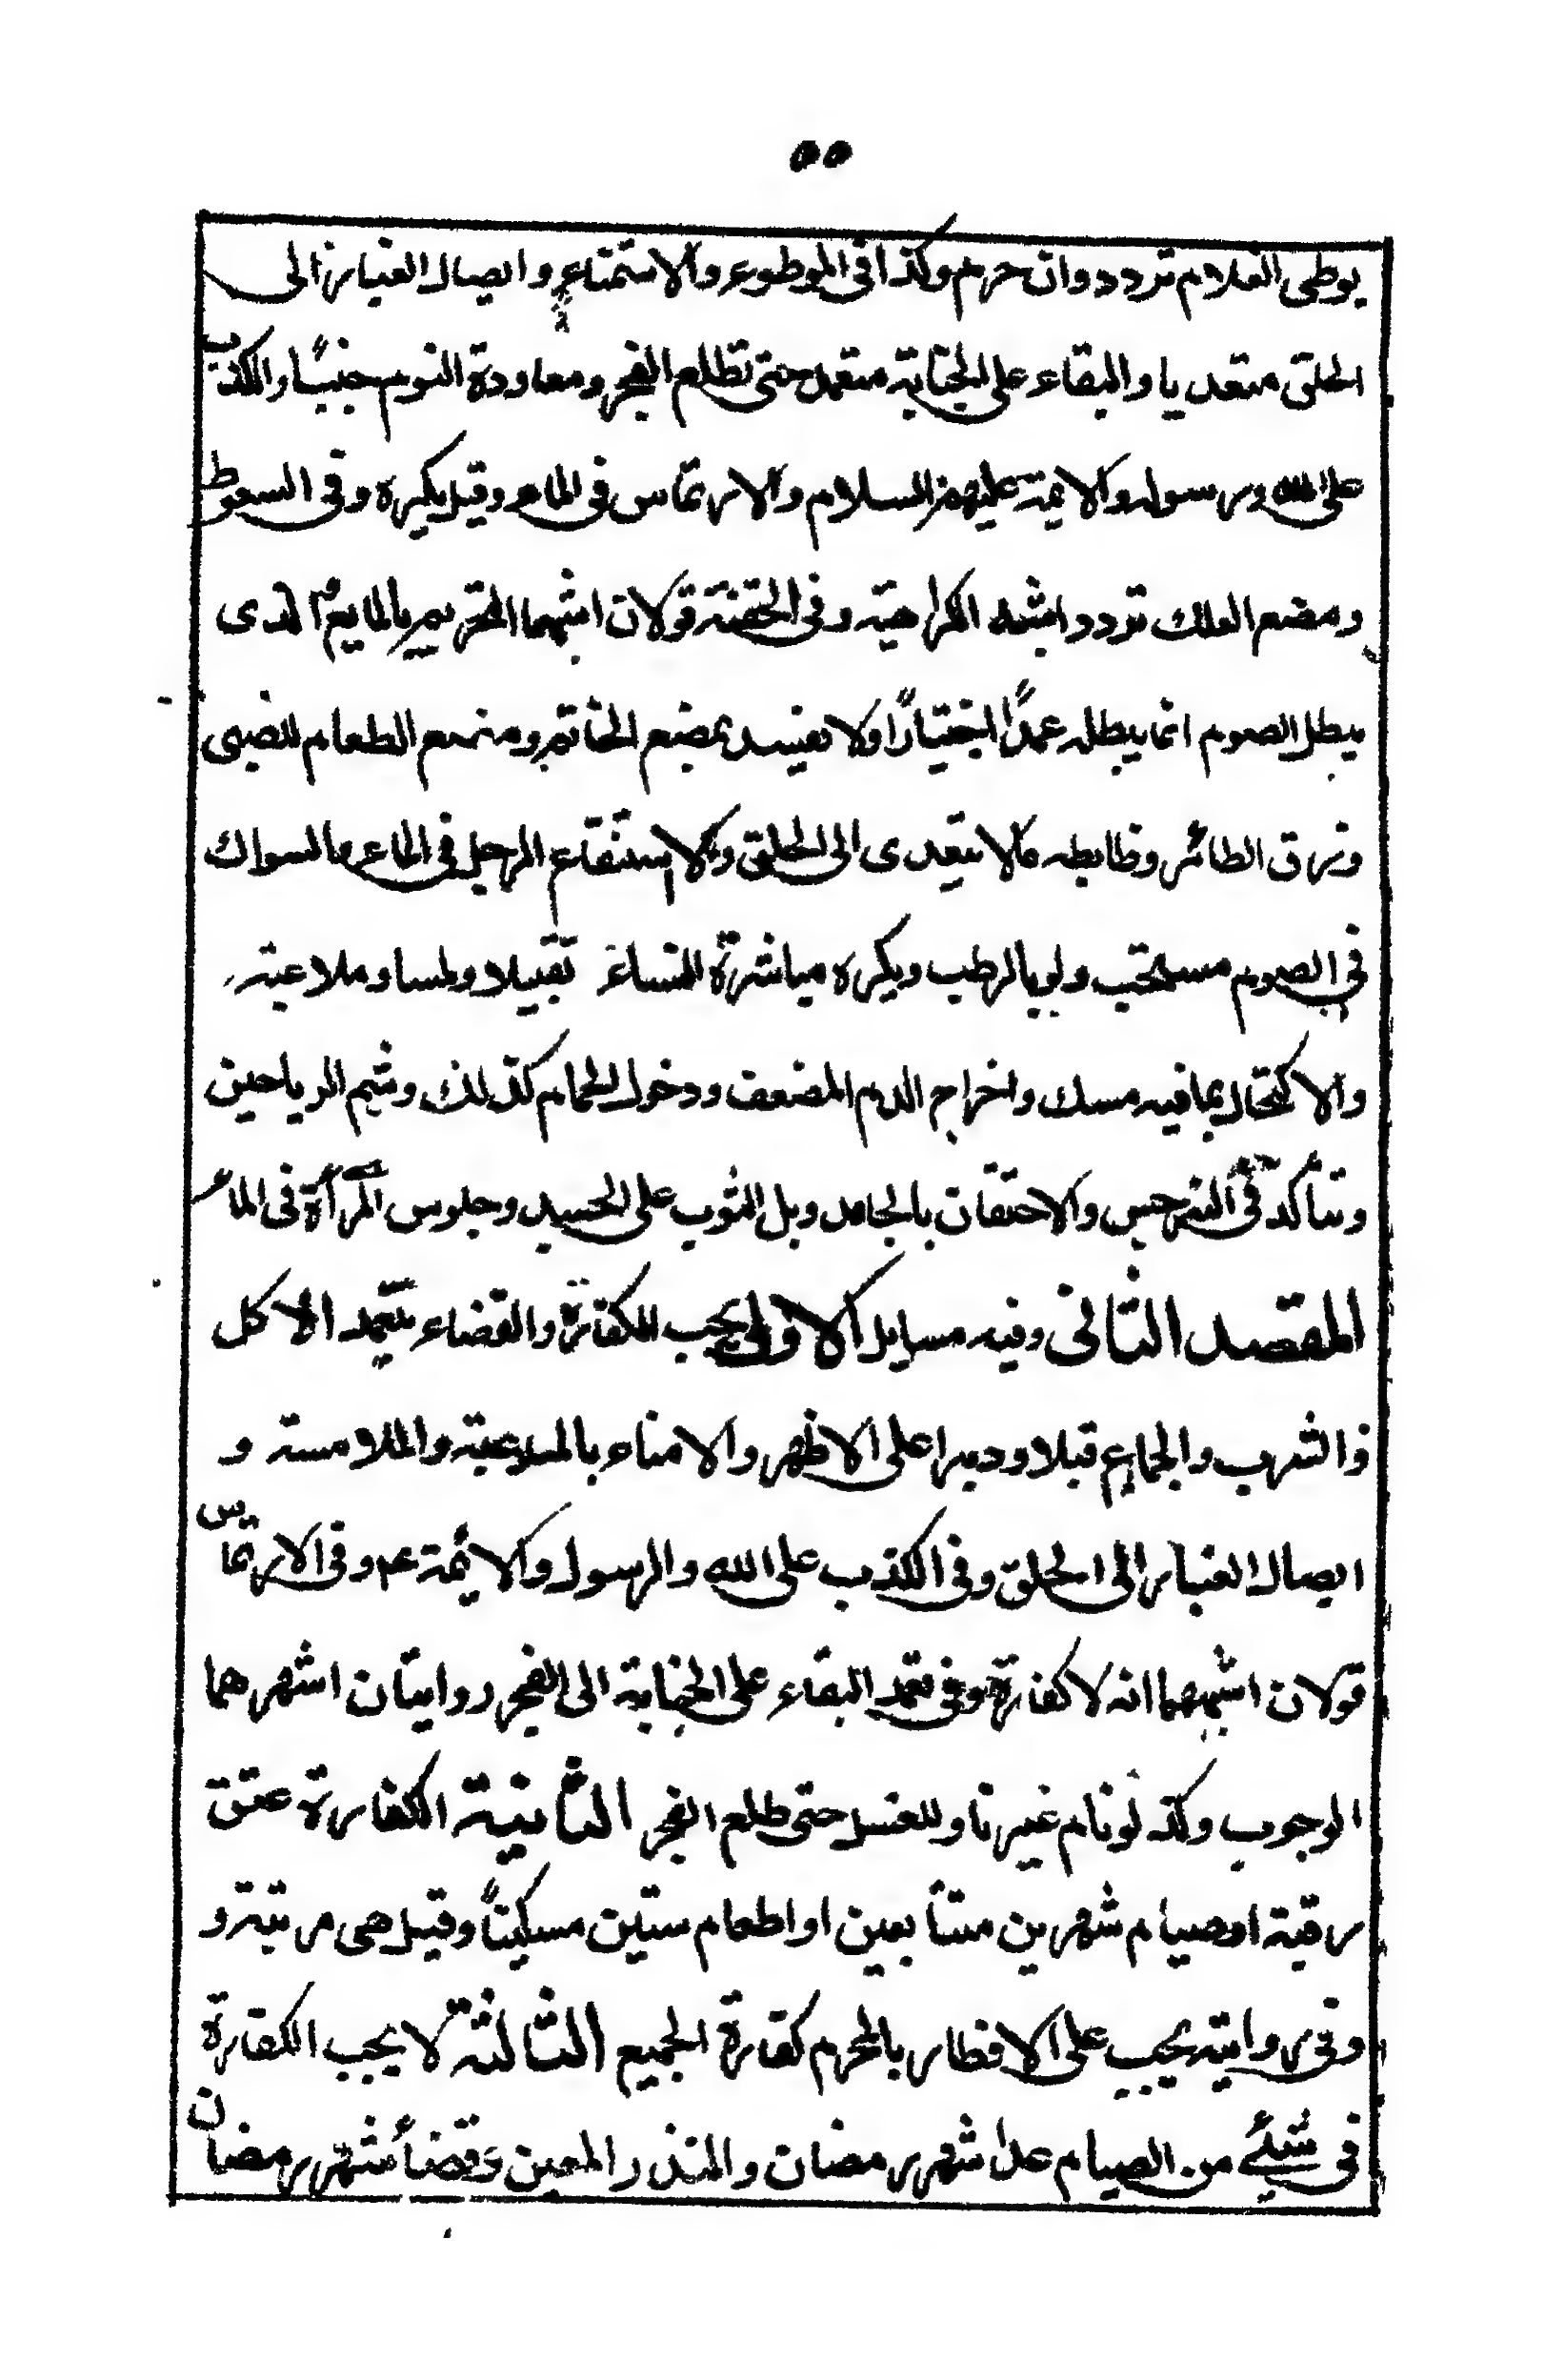 ٥٥
بوطى الغلام تردد وان حرم وكذا فى الموطوء والاستمتاع وايصال الغبار الى
الحلق متعديا والبقاء على الجنابة متعمدا حتى تطلع الفجر ومعاودة النوم جنبًا والكذب
على الله ورسوله والايمة عليهم السلام والارتماس فى الماء وقيل يكره وفى السعوط
ومضع العلك تردد اشبه الكراهية وفى الحقنة قولان اشبهما التحريم بالمايع الذى
يبطل الصوم انما يبطله عمدًا اختيارًا ولا يفسد بمضع الخاتم ومضع الطعام للصبى
وزق الطائر وظابطه ما لا يتعدى الى الحلق ولا استنقاع الرجل فى الماء والسواك
فى الصوم مستحب ولو بالرطب ويكره مباشرة النساء تقبيلا ولمسا وملاعبة
والاكتحال بما فيه مسك واخراج الدم المضعف ودخول الحمام كذلك وشم الرياحين
وتتأكد فى النرجس والاحتقان بالجامد وبل الثوب على الجسد وجلوس المرأة فى الماء
المقصد الثانى وفيه مسايل الاولى يجب الكفارة والقضاء بتعمد الاكل
والشرب والجماع قبلا ودبرا على الاظهر والامناء بالملاعبة والملامسة و
ايصال الغبار الى الحلق وفى الكذب على الله والرسول والائمة عم وفى الارتماس
قولان اشبههما انه لا كفارة وفى تعمد البقاء على الجنابة الى الفجر روايتان اشهرهما
الوجوب وكذ لو نام غير ناو للغسل حتى طلع الفجر الثانية الكفارة عتق
رقبة او صيام شهرين متتأبعين او اطعام ستين مسكينًا وقيل هى مرتبة و
وفى رواية يجب على الافطار بالمحرم كفارة الجميع الثالثة لا يجب الكفارة
فى شئے من الصيام عدا شهر رمضان والنذر المعين وقضاء شهر رمضان